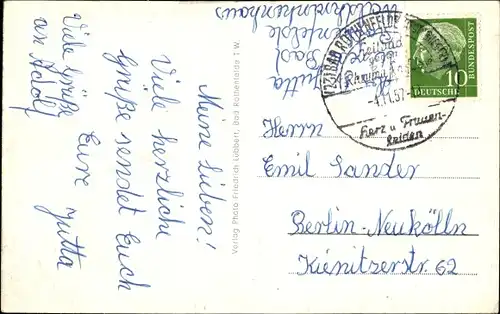 Meine Lieben!
Viele herzliche
Grüße sendet Euch
Eure Jutta
Viele Grüße
an Adolf
Jutta
Bad
Verlag Photo Friedrich Lübbert, Bad Rothenfelde T.W.
BAD ROTHENFELDE
Heilbad
gegen
Rheuma
-4.11.57-
Herz u Frauen-
leiden
DEUTSCHE
BUNDESPOST
10
Herrn
Emil Sander
Berlin-Neukölln
Kienitzerstr. 62